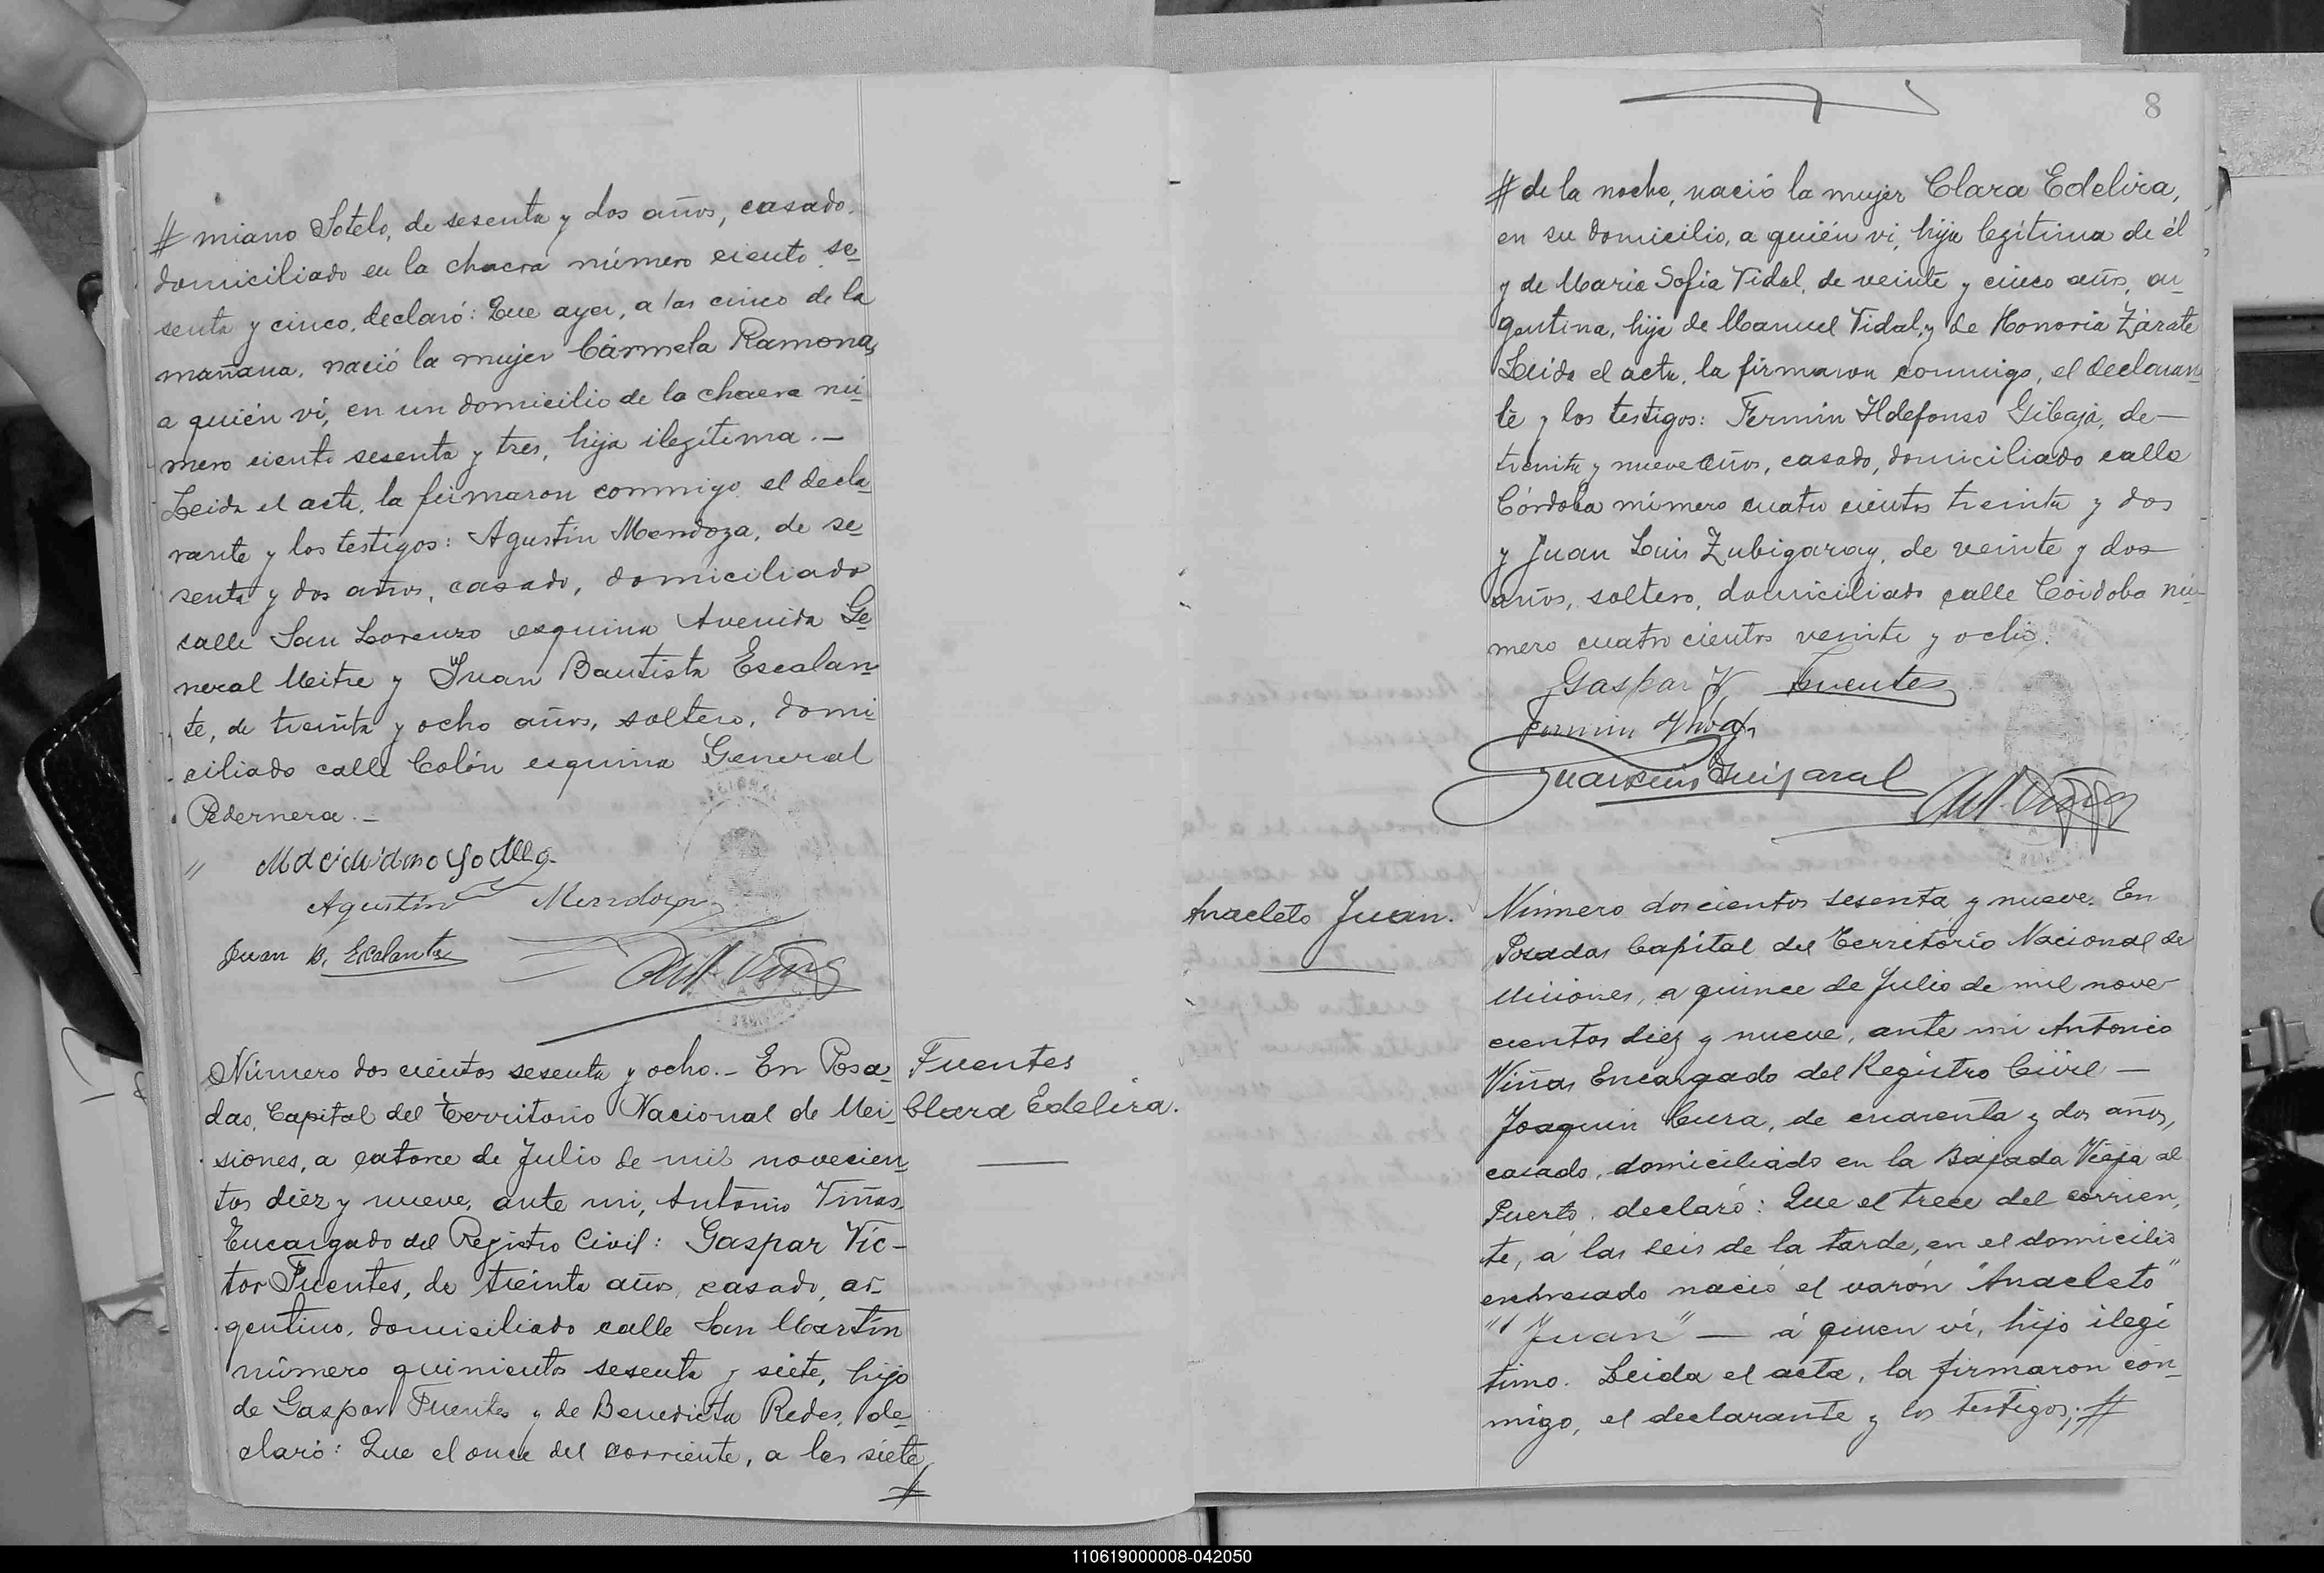 # miano Sotelo, de sesenta y dos años, casado,
domiciliado en la chacra número ciento se-
senta y cinco, declaró: Que ayer, a las cinco de la
mañana, nació la mujer Cármela Ramona,
a quién vi, en un domicilio de la chacra nú-
mero ciento sesenta y tres, hija ilegítima.—
Leida el acta, la firmaron conmigo el decla-
rante y los testigos: Agustín Mendoza, de se-
senta y dos años, casado, domiciliado
calle San Lorenzo esquina Avenida Ge-
neral Mitre y Juan Bautista Escalan-
te, de treinta y ocho años, soltero, domi-
ciliado calle Colón esquina General
Pedernera.—
Agustín Mendoza
Juan B. Escalante
Número dos cientos sesenta y ocho.- En Posa-
das, Capital del Territorio Nacional de Mi-
siones, a catorce de Julio de mil novecien-
tos diez y nueve, ante mi, Antonio Viñas
Encargado del Registro Civil: Gaspar Víc-
tor Fuentes, de treinta años, casado, ar-
gentino, domiciliado calle San Martín
número quinientos sesenta y siete, hijo
de Gaspar Fuentes y de Benedicta Redes, de-
claró: Que el once del corriente, a las siete
#
Fuentes
Clara Edelira.
8
# de la noche, nació la mujer Clara Edelira,
en su domicilio, a quién vi, hija legítima de él
y de Maria Sofia Vidal, de veinte y cinco años, ar-
gentina, hija de Manuel Vidal, y de Honoria Zárate
Leida el acta, la firmaron conmigo, el declaran-
te y los testigos: Fermin Ildefonso Gibaja, de—
treinta y nueve años, casado, domiciliado calle
Córdoba número cuatro cientos treinta y dos
y Juan Luis Zubigaray, de veinte y dos
años, soltero, domiciliado calle Córdoba nú-
mero cuatro cientos veinte y ocho.
Gaspar V. Fuentes
Anacleto Juan.
Número dos cientos sesenta y nueve. En
Posadas Capital del Territorio Nacional de
Misiones, a quince de Julio de mil nove-
cientos diez y nueve, ante mi Antonio
Viñas Encargado del Registro Civil—
Joaquin Cura, de cuarenta y dos años,
casado, domiciliado en la Bajada Vieja al
Puerto, declaró: Que el trece del corrien-
te, á las seis de la tarde, en el domicilio
expresado nació el varón "Anacleto"
"Juan" — á quien vi, hijo ilegí
timo. Leida el acta, la firmaron con-
migo, el declarante y los testigos; #
110619000008-042050